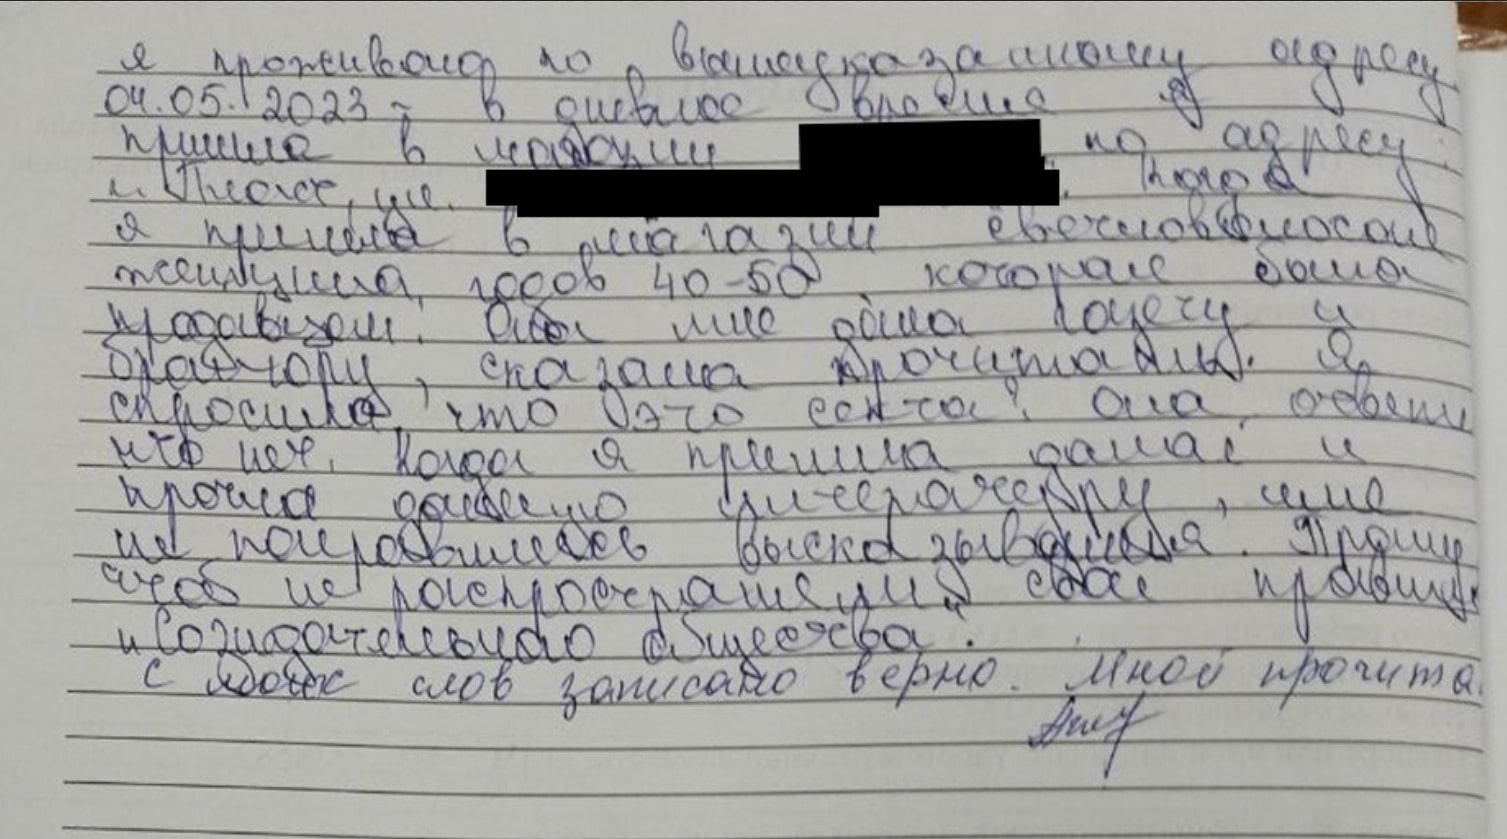 я проживаю по вышеуказанному адресу
04.05.2023 г в дневное время я
пришла в магазин по адресу:
ул. Когда
я пришла в магазин
женщина, годов 40-50 которая была
продавцом. Она мне дала газету и
сказала прочитать. Я
спросила, что это секта? Она ответи
что нет. Когда я пришла домой и
прочла данную литературу, мне
не понравились высказывания. Прошу
чтоб не свое
"Созидательного общества".
С моих слов записано верно. Мной прочита